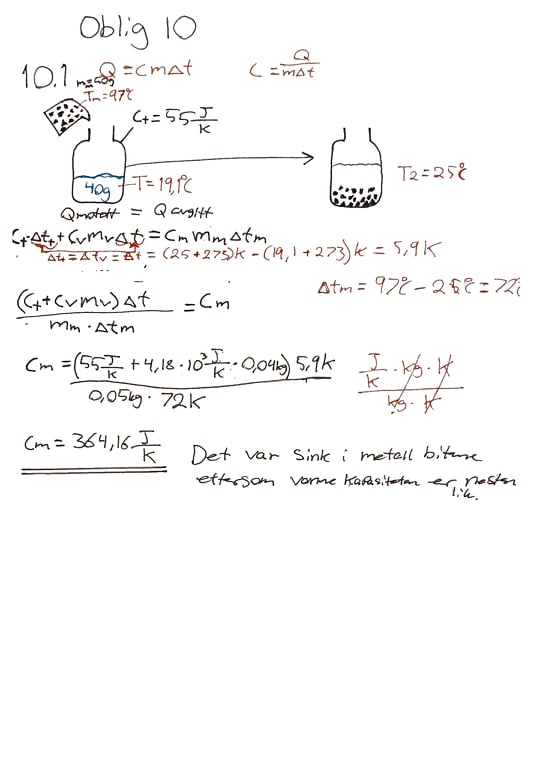 Oblig 10
10.1 m=50g Q=cm∆t C=Q/m∆t
Tm=97°C
Ct=55 J/K
40g T=19,1°C T2=25°C
Qmotatt = Qavgitt
Ct∆tt+CvMv∆t=CmMm∆tm
∆tt=∆tv=∆t=(25+273)K-(19,1+273)K=5,9K
∆tm=97°C-25°C=72°C
(Ct+CvMv)∆t/Mm·∆tm=Cm
Cm=(55 J/K+4,18·10³ J/K·0,04kg)5,9K/0,05kg·72K J/K·kg·K/kg·K
Cm=364,16 J/K Det var sink i metall bitene
ettersom varme kapasiteten er nesten
lik.